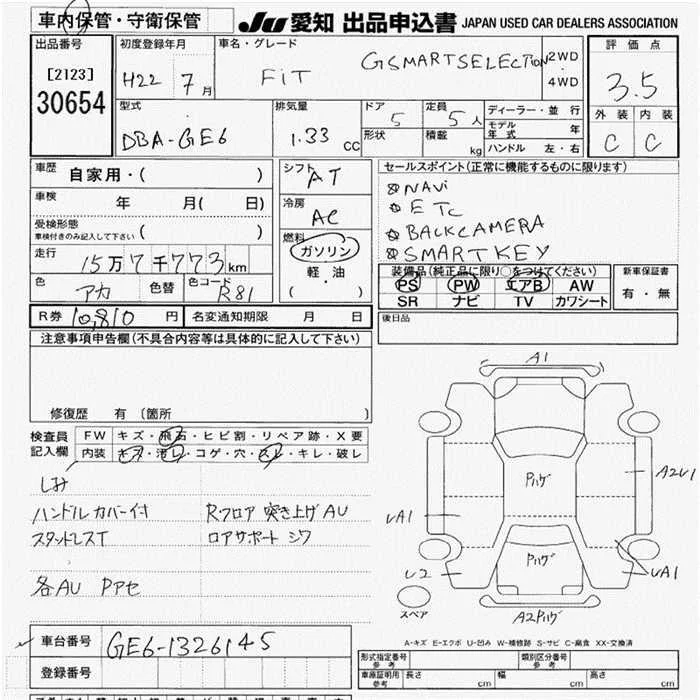 車内保管・守衛保管
JU 愛知 出品申込書 JAPAN USED CAR DEALERS ASSOCIATION
出品番号
[2123]
30654
初度登録年月
H22 7月
車名・グレード
FiT GSMARTSELECTION
2WD
・
4WD
評価点
3.5
外装 内装
C C
型式
DBA-GE6
排気量
1.33 CC
ドア 5
形状
定員 5人
積載 kg
ディーラー・並行
モデル年式 年
ハンドル 左・右
車歴 自家用・( )
車検 年 月( 日)
受検形態
車検付きのみ記入して下さい ( )
走行 15万7千773km
色 アカ 色替 色コード R81
シフト AT
冷房 AC
燃料
ガソリン
軽・油
( ・ )
セールスポイント(正常に機能するものに限ります)
NAVi
ETC
BACKCAMERA
SMARTKEY
装備品(純正品に限り○をつけてください)
PS PW エアB AW
SR ナビ TV カワシート
新車保証書
有・無
R券 10,810 円 名変通知期限 月 日
後日品
注意事項申告欄(不具合内容等は具体的に記入して下さい)
修復歴 有 〔箇所 〕
検査員記入欄
FW キズ・飛石・ヒビ割・リペア跡・X要
内装 キズ・汚レ・コゲ・穴・スレ・キレ・破レ
しみ
ハンドルカバー付 Rフロア 突き上げAU
スタッドレスT ロアサポート シワ
各AU Pアセ
A1
Pハゲ
A2U1
UA1
Pハゲ
U2
UA1
スペア
A2Pハゲ
A-キズ E-エクボ U-凹み W-補修跡 S-サビ C-腐食 XX-交換済
車台番号 GE6-1326145
登録番号
形式指定番号 参考 類別区分番号 参考
車原証明用 参考 長さ cm 幅 cm 高さ cm